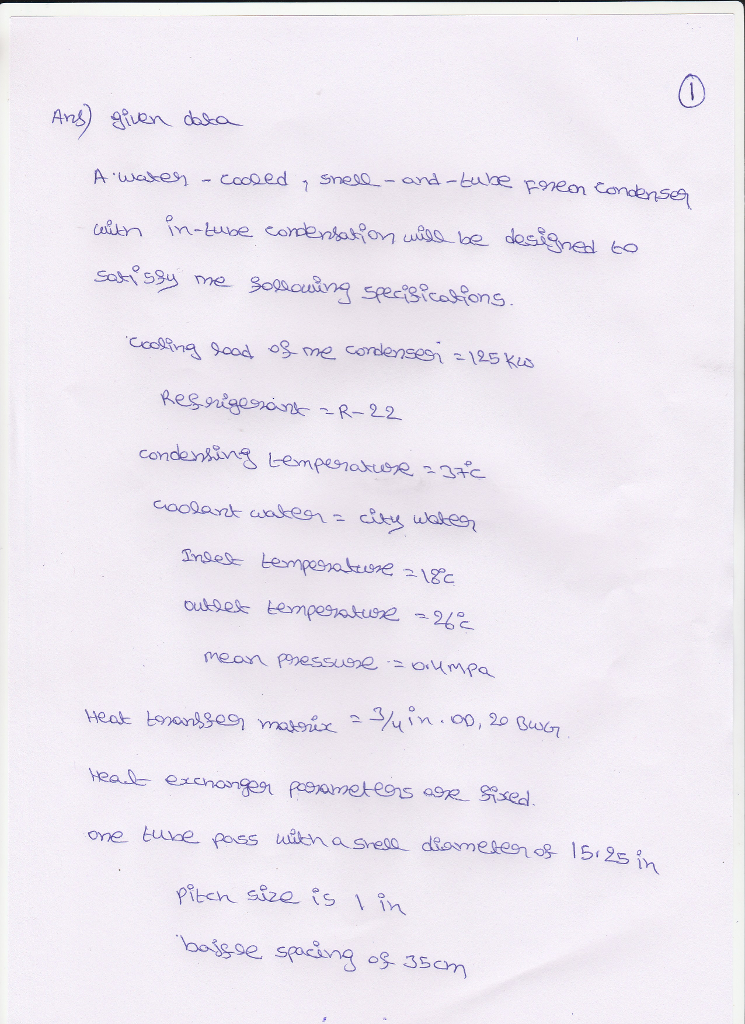 1
Ans) given data
A water-cooled, shell-and-tube Freon condenser
with in-tube condensation will be designed to
satisfy the following specifications.
cooling load of the condenser = 125 kw
Refrigerant = R-22
condensing temperature = 37°c
coolant water = city water
Inlet temperature = 18°c
outlet temperature = 26°c
mean pressure = 0.4 mpa
Heat transfer matrix = 3/4 in. OD, 20 BWG
Heat exchanger parameters are fixed.
one tube pass with a shell diameter of 15.25 in
pitch size is 1 in
baffle spacing of 35cm